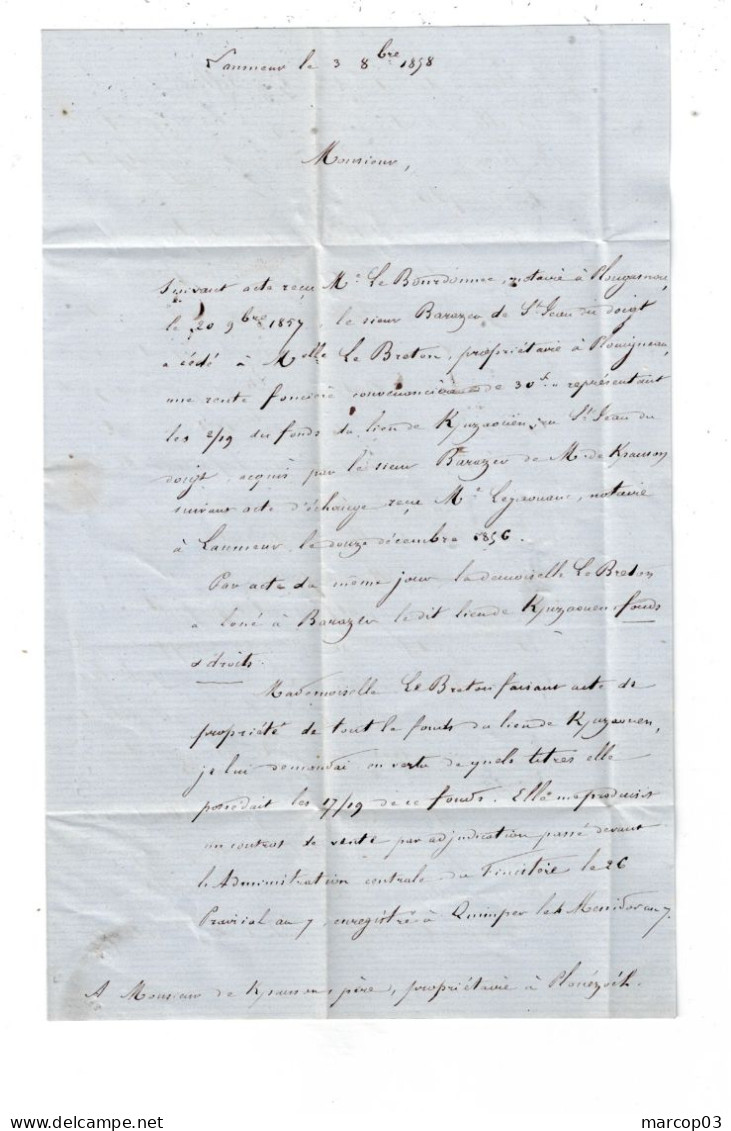 Lanmeur le 3 8bre 1858
Monsieur,
Suivant acte reçu Me Le Bourdonnec, notaire à Plougasnou,
le 20 9bre 1857, le sieur Barazer de St Jean du doigt
a cédé à Melle Le Breton, propriétaire à Plouigneau,
une rente foncière convenancière de 30f représentant
les 2/19 du fonds du lieu de Kjuzaouën, en St Jean du
doigt, acquis par le sieur Barazer de Mr de Krauson
suivant acte d'échange reçu Me, notaire
à Lanmeur, le douze décembre 1856.
Par acte du même jour la demoiselle Le Breton
a loué à Barazer le dit lieu de Kjuzaouen fonds
& droits.
Mademoiselle Le Breton faisant acte de
propriété de tout le fonds du lieu de Kjuzaouen,
je lui demandai en vertu de quels titres elle
possedait les 17/19 de ce fonds. Elle me produisit
un contrat de vente par adjudication passé devant
l'Administration centrale du Finistère le 26
Prairial an 7, enregistré à Quimper le 4 Messidor an 7.
A Monsieur de Krauson, père, propriétaire à Plouézoch.
marcop03